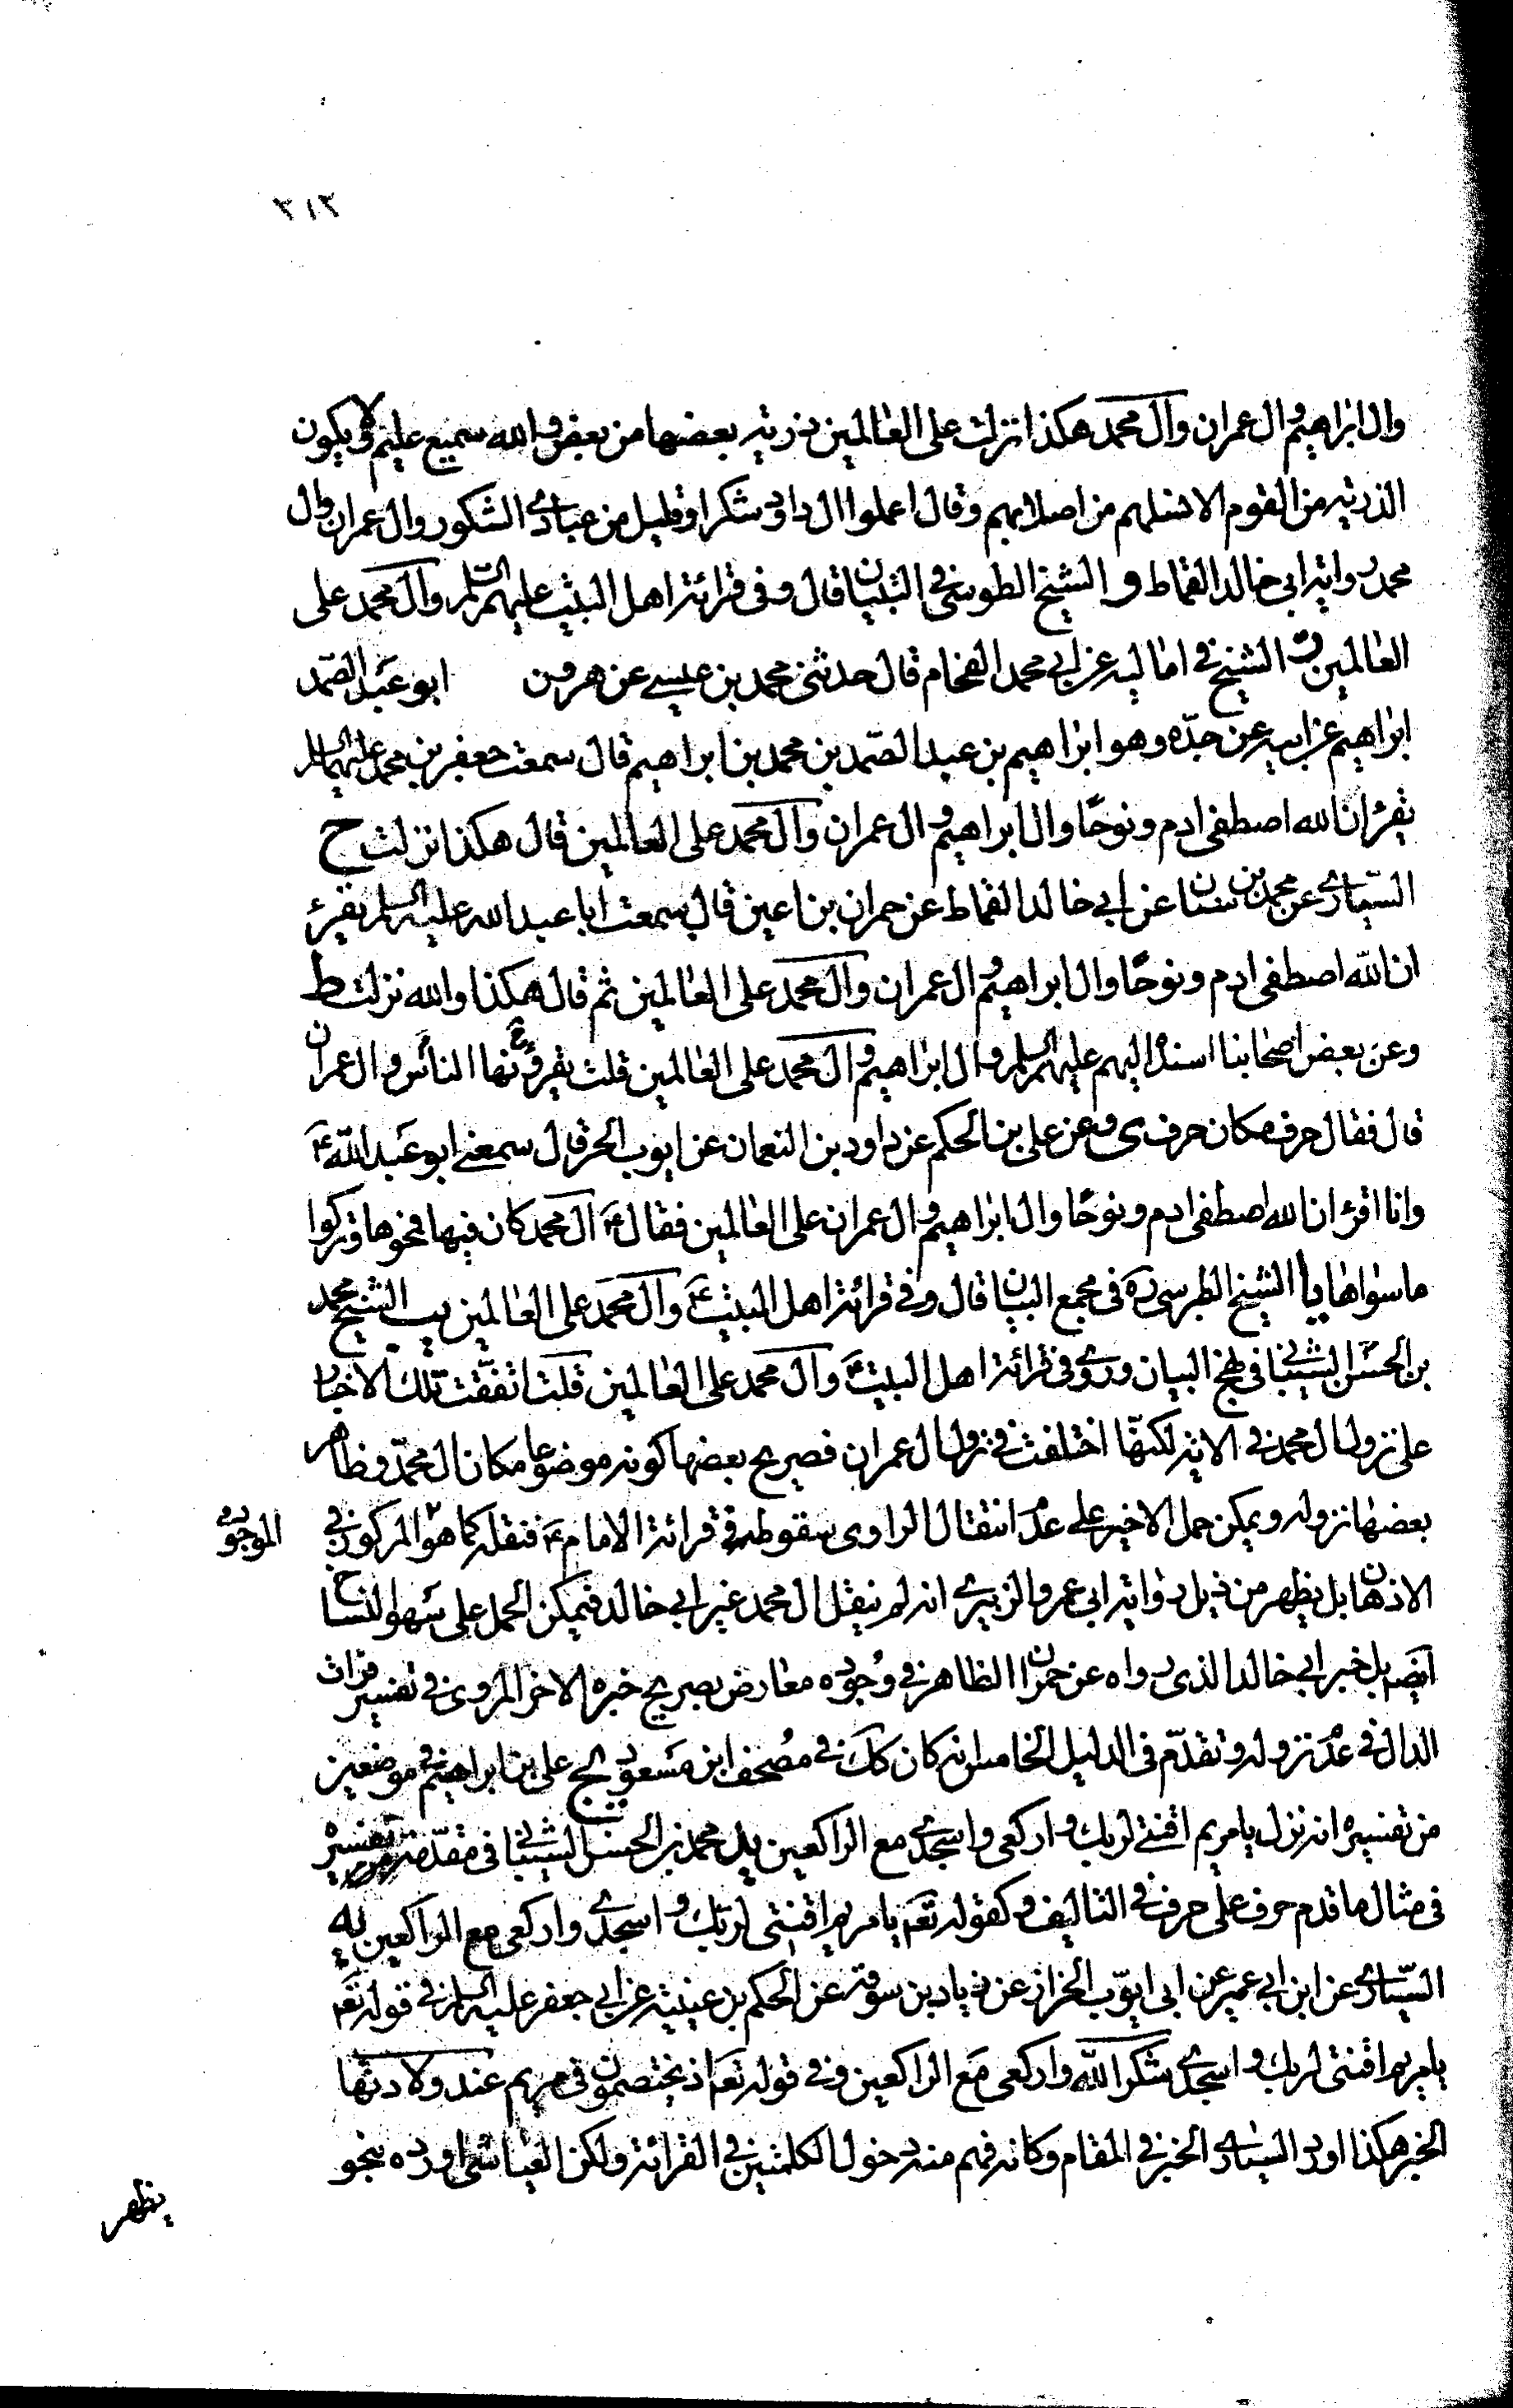 ٣١٣
وال ابراهيم وال عمران وآل محمد هكذا نزلت على العالمين ذرية بعضها من بعض والله سميع عليم ولا يكون
الذرية من القوم الا نسلهم من اصلابهم وقال اعملوا ال داود شكرا وقليل من عبادي الشكور وال عمران وال
محمد رواية ابي خالد القماط و الشيخ الطوسي في التبيان قال وفى قرائة اهل البيت عليهم السلم وآل محمد على
العالمين الشيخ في اماليه عن ابي محمد الفحام قال حدثنى محمد بن عيسى عن هرون ابو عبد الصمد
ابراهيم عن ابيه عن جدّه وهو ابراهيم بن عبد الصمد بن محمد بن ابراهيم قال سمعت جعفر بن محمد عليهما السلم
يقرء ان الله اصطفى ادم ونوحًا وال ابراهيم وال عمران وآل محمد على العالمين قال هكذا نزلت ح
السيّاري عن محمد بن سنان عن ابي خالد القماط عن حمران بن اعين قال سمعت ابا عبد الله عليه السلم يقرئ
ان الله اصطفى ادم ونوحًا وال ابراهيم وال عمران وآل محمد على العالمين ثم قال هكذا والله نزلت ط
وعن بعض اصحابنا اسنده اليهم عليهم السلم وال ابراهيم وآل محمد على العالمين قلت يقرؤنها الناس وال عمران
قال فقال حرف مكان حرف ى وعن على بن الحكم عن داود بن النعمان عن ايوب الحر قال سمعنى ابو عبد الله ع
وانا اقرء ان الله اصطفى ادم ونوحًا وال ابراهيم وال عمران على العالمين فقال ع وآل محمد كان فيها فمحوها وتركوا
ما سواها يا الشيخ الطبرسى ره فى مجمع البيان قال وفي قرائة اهل البيت ع وآل محمد على العالمين يب الشيخ محمد
بن الحسن الشيباني في نهج البيان وروي في قرائة اهل البيت ع وآل محمد على العالمين قلت اتفقت تلك الاخبار
على نزول ال محمد في الاية لكنّها اختلفت في نزول ال عمران فصريح بعضها كونه موضوعا مكان ال محمّد وظاهر
بعضها نزوله ويمكن حمل الاخير على عدم انتقال الراوى سقوطه في قرائة الامام ع فنقله كما هو المركوز في الموجود في
الاذهان بل يظهر من ذيل رواية ابي عمرو الزبيري انه لم ينقل ال محمد غير ابي خالد فيمكن الحمل على سهو النساخ
ايضا بل خبر ابي خالد الذى رواه عن حمران الظاهر في وجوده معارض بصريح خبره الاخر المروى في تفسير فرات
الدال في عدم نزوله وتقدّم فى الدليل الخامس انه كان كك في مصحف ابن مسعود يج على بن ابراهيم في موضعين
من تفسيره انه نزل يا مريم اقنتي لربك واركعى واسجدي مع الراكعين يد محمد بن الحسن الشيباني فى مقدّمة تفسيره
في مثال ما قدم حرف على حرف في التاليف وكقوله تعم يا مريم اقنتى لربك واسجدي واركعى مع الراكعين يه
السيّاري عن ابن ابي عمير عن ابى ايّوب الخزاز عن زياد بن سوقة عن الحكم بن عيينة عن ابي جعفر عليه السلم في قوله تعم
يا مريم اقنتى لربك واسجدي شكرا لله واركعى مع الراكعين وفي قوله تعم اذ يختصمون في مريم عند ولادتها
الخبر هكذا اورد السيارى الخبر في المقام وكانه فهم منه دخول الكلمتين في القرائة ولكن العياشى اورده بنحو
يظهر